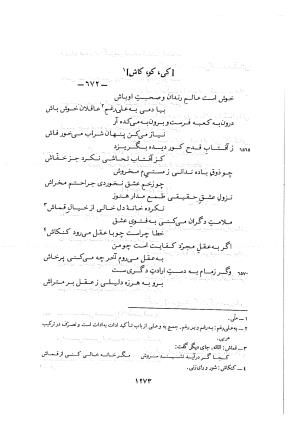 [کی، کو، کاش]۱
— ۶۷۲ —
خوش است عالم رندان و صحبت اوباش
بیا دمی به علی‌رغم۲ عاقلان خوش باش
درون به کعبه فرست و برون به میکده آر
نیاز می‌کن پنهان شراب می‌خور فاش
۶۵۶۵ ز آفتاب قدح کور دیده بگریزد
کز آفتاب تحاشی نکرد جز خفاش
چو ذوق باده ندانی ز مستیم مخروش
چو زخم عشق نخوردی جراحتم مخراش
نزول عشق حقیقی طمع مدار هنوز
نکرده خانهٔ دل خالی از خیال قماش۳
ملامت دگران می‌کنی به فتوی عشق
خطا چراست چو با عقل می‌رود کنکاش۴
اگر به عقل مجرد کفایت است چو من
به عقل می‌روم آخر چه می‌کنی پرخاش
۶۵۷۰ وگر زمام به دست ارادت دگری‌ست
برو به هرزه دلیلی ز عقل بر متراش
۱ – ملی.
۲ – به علی‌رغم: به رغم و بر رغم. جمع به و علی از باب تأکید ادات به ادات است و تصرف در ترکیب
عربی.
۳ – قماش: اثاثه. جای دیگر گفت:
کجا گر درآید نشیند سروش مگر خانه خالی کنی از قماش
۴ – کنکاش: شور و رای‌زنی.
۱۲۷۳